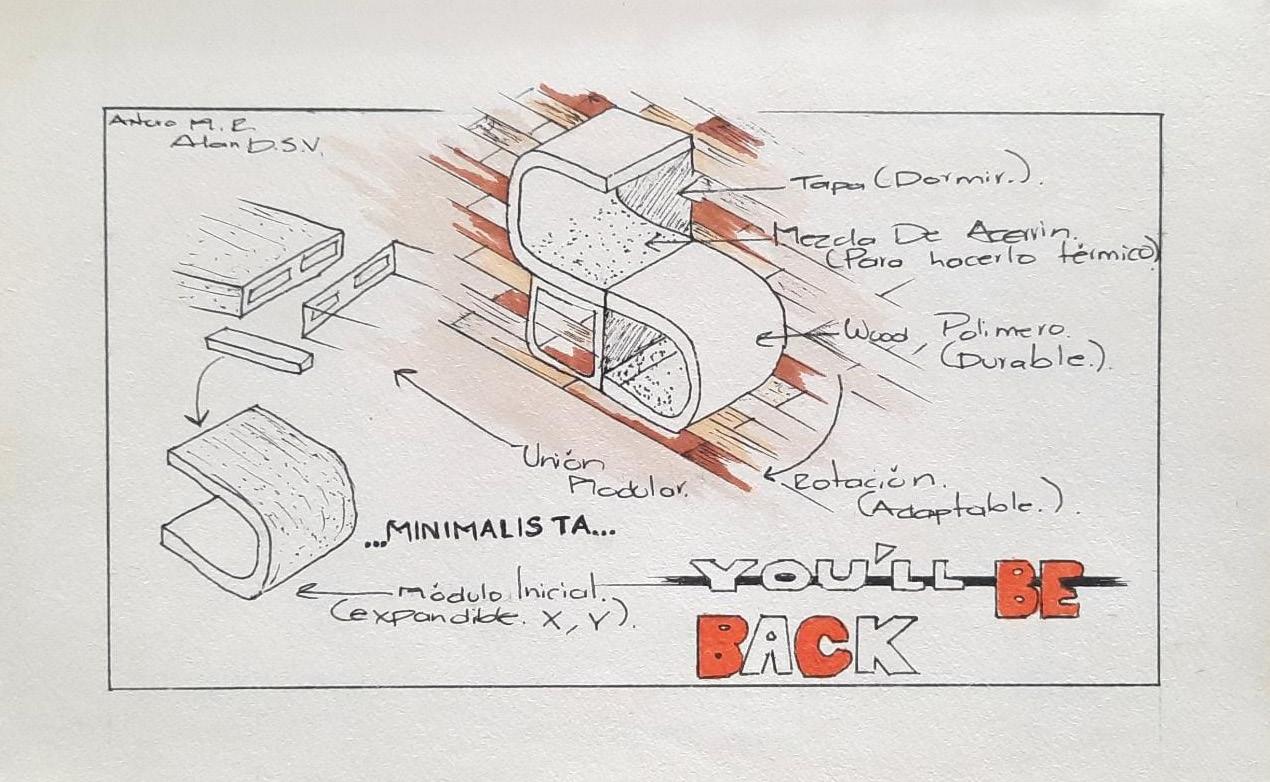 Arturo M. E.
Alan D.S.V.
Tapa (Dormir.).
Mezcla De Acerrin.
(Para hacerlo térmico)
Wood, Polimero.
(Durable.).
Unión
Modular.
Rotación.
(Adaptable.).
...MINIMALISTA...
Módulo Inicial.
(expandible. X, Y).
YOU'LL BE
BACK